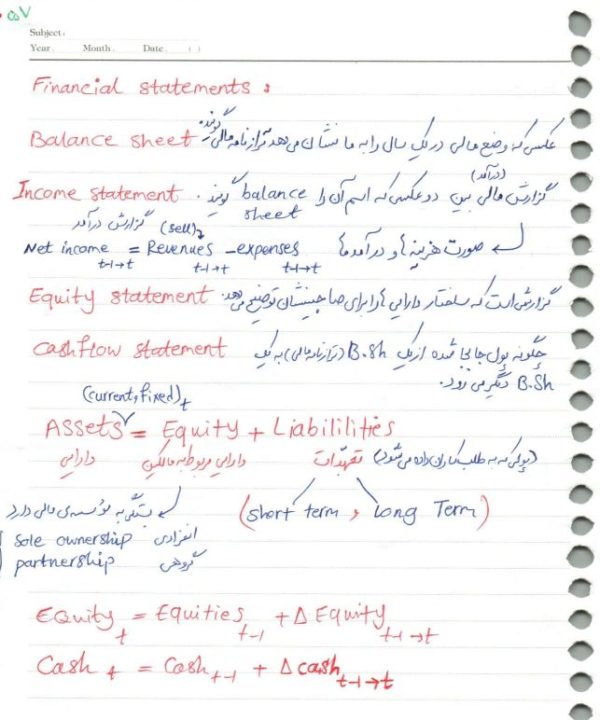 ۵۷
Subject:
Year. Month. Date. ( )
Financial statements:
Balance sheet عکسی که وضع مالی در یک سال را به ما نشان می‌دهد ترازنامه مالی گویند.
(درآمد)
Income statement گزارش مالی بین دو عکسی که اسم آن را balance sheet گویند.
گزارش درآمد (sell)
Net income t-1→t = Revenues t-1→t - expenses t-1→t صورت هزینه‌ها و درآمدها
Equity statement گزارشی است که ساختار دارایی‌ها را برای صاحبینشان توضیح می‌دهد.
Cashflow statement چگونه پول جابجا شده از یک B.Sh (ترازنامه مالی) به یک
B.Sh دیگر می‌رود.
(current, fixed)t
Assets = Equity + Liabililities
دارایی دارایی مربوط به مالکین تعهدات (پولی که به طلبکاران داده می‌شود)
بستگی به مؤسسه‌ی مالی دارد (short term, Long Term)
sole ownership انفرادی
partnership گروهی
Equity t = Equities t-1 + Δ Equity t-1→t
Cash t = Cash t-1 + Δ cash t-1→t